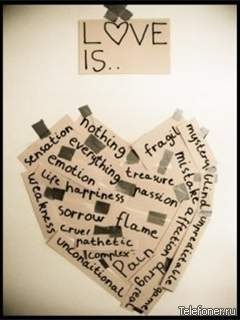 LOVE
IS..
nothing
sensation
everything
fragil
mystery
emotion
treasure
mistake
blind
life
happiness
passion
affection
unpredictable
weakness
sorrow
flame
cruel
pathetic
complex
Pain
drug
game
unconditional
Telefoner.ru